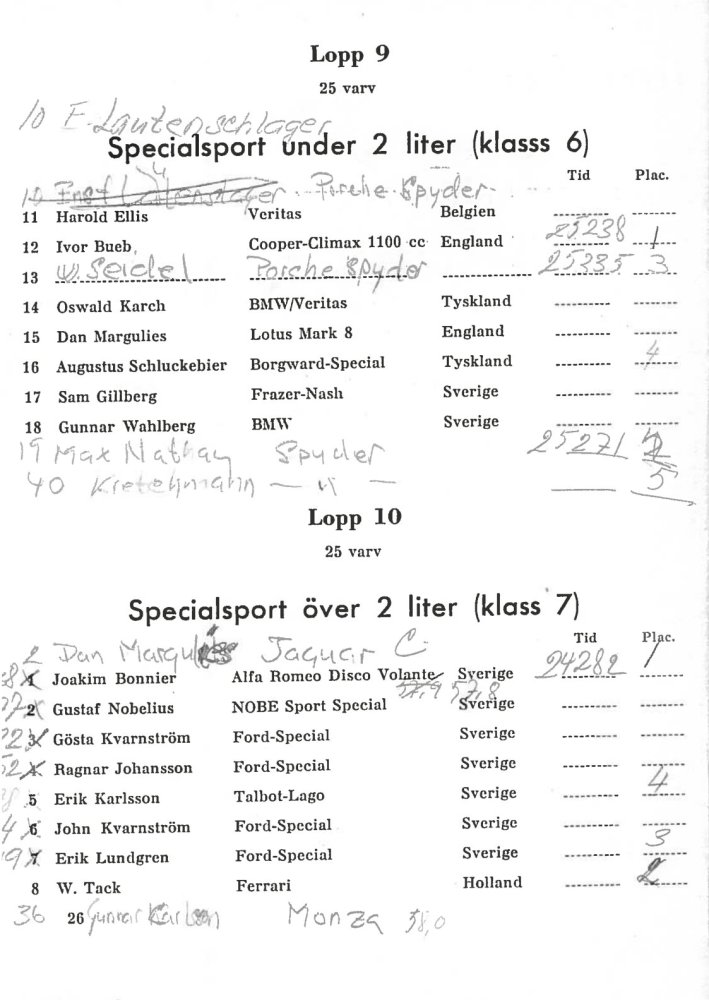 Lopp 9
25 varv
10 E. Lautenschlager
Specialsport under 2 liter (klasss 6)
Tid Plac.
Porche Spyder
11 Harold Ellis Veritas Belgien
12 Ivor Bueb Cooper-Climax 1100 cc England 25238 1
13 W. Seidel Porche Spyder 25335 3
14 Oswald Karch BMW/Veritas Tyskland
15 Dan Margulies Lotus Mark 8 England
16 Augustus Schluckebier Borgward-Special Tyskland 4
17 Sam Gillberg Frazer-Nash Sverige
18 Gunnar Wahlberg BMW Sverige
19 Max Nathan Spyder 25271 2
40 Kretchmann — " — 5
Lopp 10
25 varv
Specialsport över 2 liter (klass 7)
Tid Plac.
2 Dan Margulies Jaguar C. 24282 1
1 Joakim Bonnier Alfa Romeo Disco Volante Sverige
57,9 57,8
2 Gustaf Nobelius NOBE Sport Special Sverige
3 Gösta Kvarnström Ford-Special Sverige
Ragnar Johansson Ford-Special Sverige
5 Erik Karlsson Talbot-Lago Sverige 4
6 John Kvarnström Ford-Special Sverige
7 Erik Lundgren Ford-Special Sverige 3
8 W. Tack Ferrari Holland 2
36 26 Gunnar Karlsson Monza 58,0